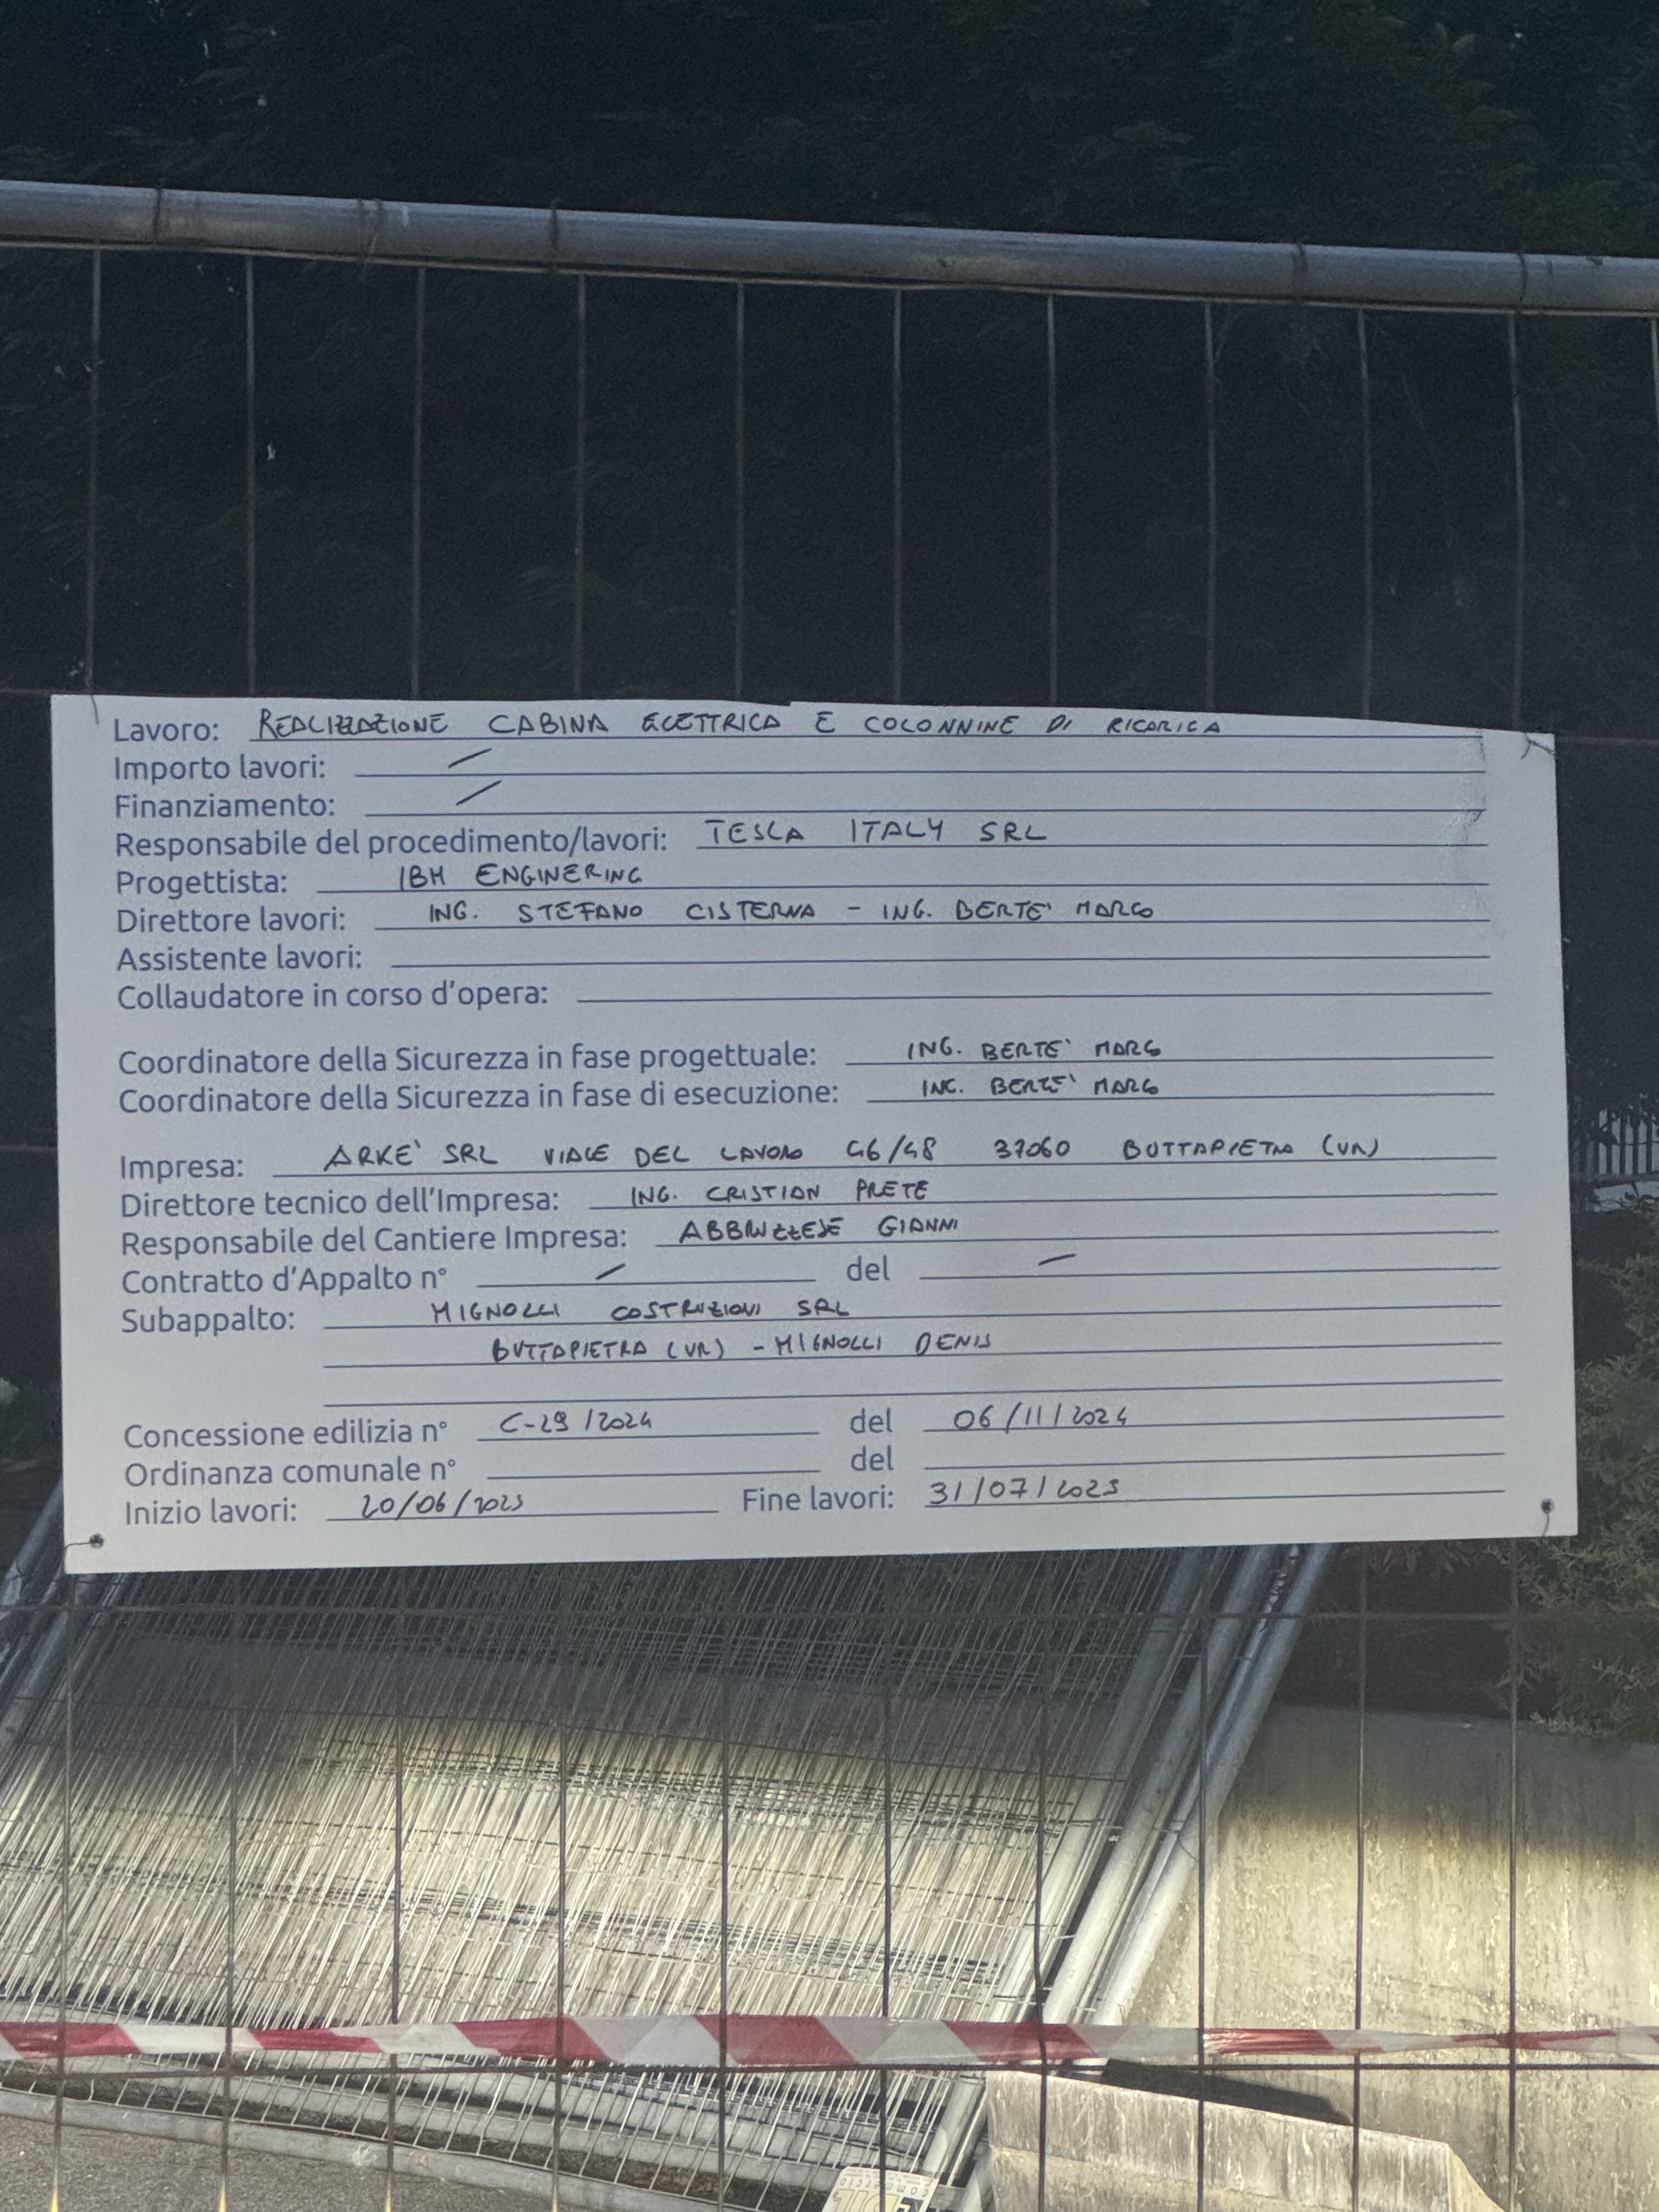 Lavoro: REALIZZAZIONE CABINA ELETTRICA E COLONNINE DI RICARICA
Importo lavori: /
Finanziamento: /
Responsabile del procedimento/lavori: TESLA ITALY SRL
Progettista: IBM ENGINERING
Direttore lavori: ING. STEFANO CISTERNA - ING. BERTE' MARCO
Assistente lavori:
Collaudatore in corso d'opera:
Coordinatore della Sicurezza in fase progettuale: ING. BERTE' MARCO
Coordinatore della Sicurezza in fase di esecuzione: ING. BERTE' MARCO
Impresa: ARKE' SRL VIALE DEL LAVORO 46/48 37060 BUTTAPIETRA (VR)
Direttore tecnico dell'Impresa: ING. CRISTIAN PRETE
Responsabile del Cantiere Impresa: ABBRUZZESE GIANNI
Contratto d'Appalto n° / del /
Subappalto: MIGNOLLI COSTRUZIONI SRL
BUTTAPIETRA (VR) - MIGNOLLI DENIS
Concessione edilizia n° C-29/2024 del 06/11/2024
Ordinanza comunale n° del
Inizio lavori: 20/06/2025 Fine lavori: 31/07/2025